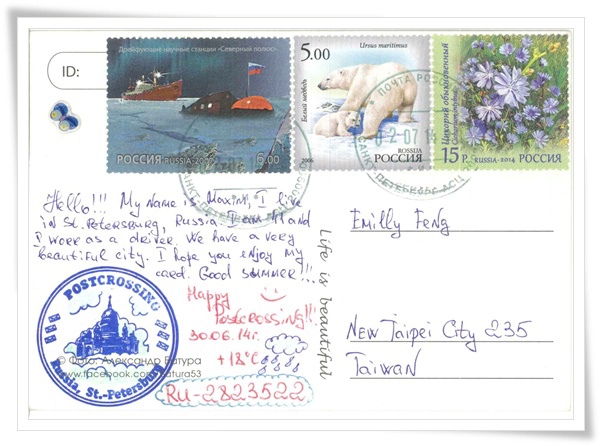 ID:
Дрейфующие научные станции «Северный полюс»
РОССИЯ RUSSIA-2007 6.00
5.00
Ursus maritimus
Белый медведь
ROSSIJA
2006 РОССИЯ
Цикорий обыкновенный
15 Р. RUSSIA-2014 РОССИЯ
ПОЧТА РОССИИ
САНКТ-ПЕТЕРБУРГ
Hello!!! My name is Maxim, I live
in St. Petersburg, Russia. I am 41 and
I work as a driver. We have a very
beautiful city. I hope you enjoy my
card. Good summer!!!
Happy
Postcrossing!!!
30.06.14г.
+12°C
Ru-2823522
POSTCROSSING
Russia, St.-Petersburg
© Фото: Александр Батура
www.facebook.com/batura53
Life is beautiful
Emilly Feng
New Taipei City 235
Taiwan